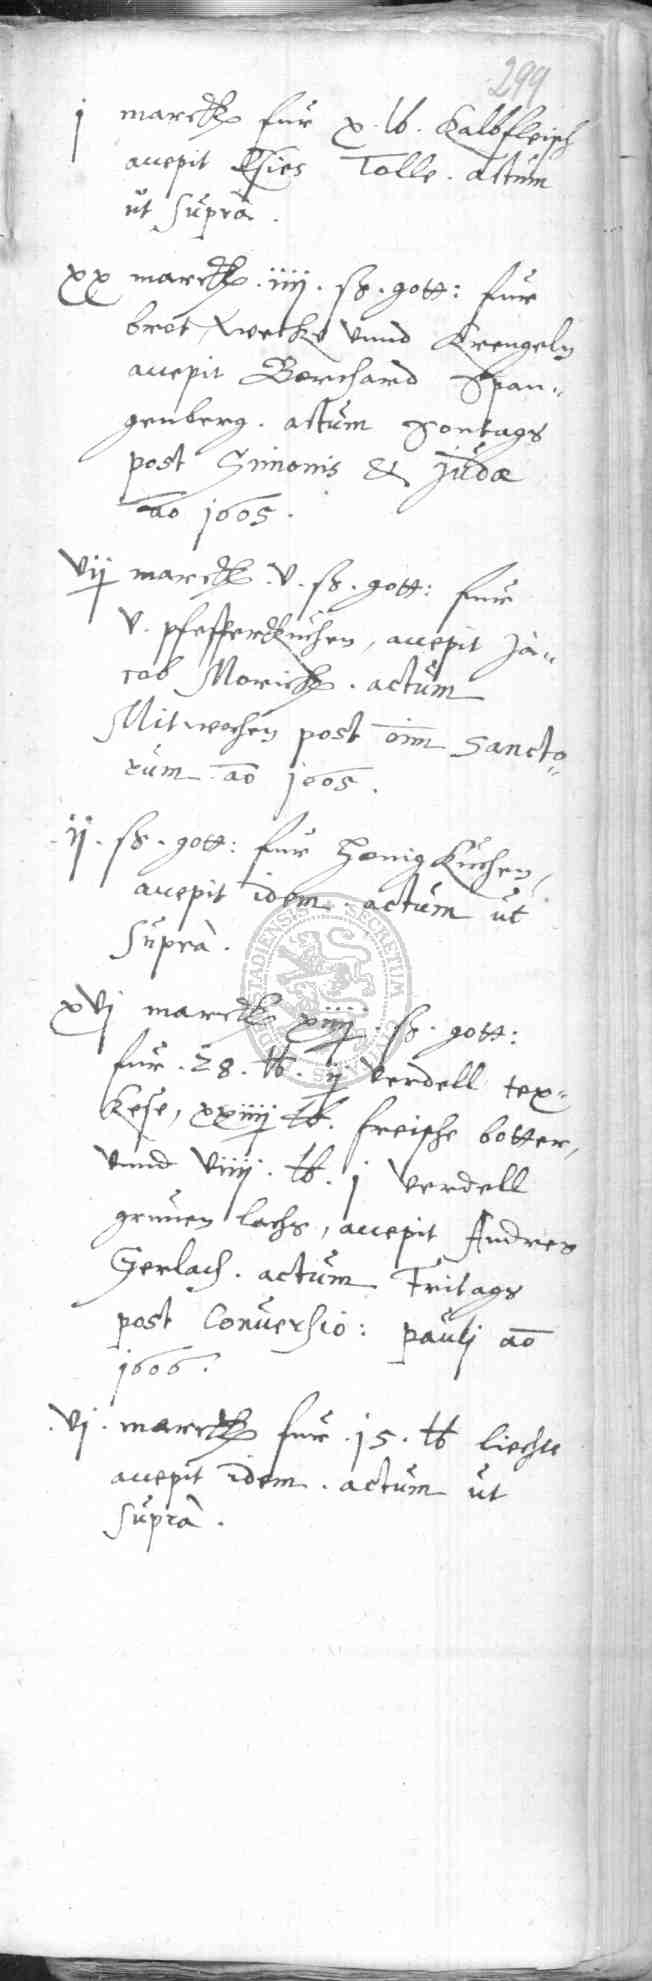 299
j marck fur x. lb. Kalbfleisch
accepit Tolle. actum
ut supra.
xx marck. iiij. sz. gott: fur
brot, wecke vnnd Krengeln
accepit Borchard Span-
genberg. actum Sontags
post Simonis & Judæ
ao 1605.
vij marck. v. sz. gott: fur
v. pfefferkuchen, accepit Ja-
cob Morich. actum
Mitwochen post oim Sancto-
rum ao 1605.
ij. sz. gott: fur Honigkuchen,
accepit idem. actum ut
supra.
xvj marck xiiij. sz. gott:
fur. 28. lb. ij verdell tex-
kese, xxiiij lb. freische botter,
vnnd viiij. lb. j verdell
grunen lachs, accepit Andres
Gerlach. actum Fritags
post Conversio: pauli ao
1606.
vj. marck fur. 15. lb liechte
accepit idem. actum ut
supra.
SECRETUM